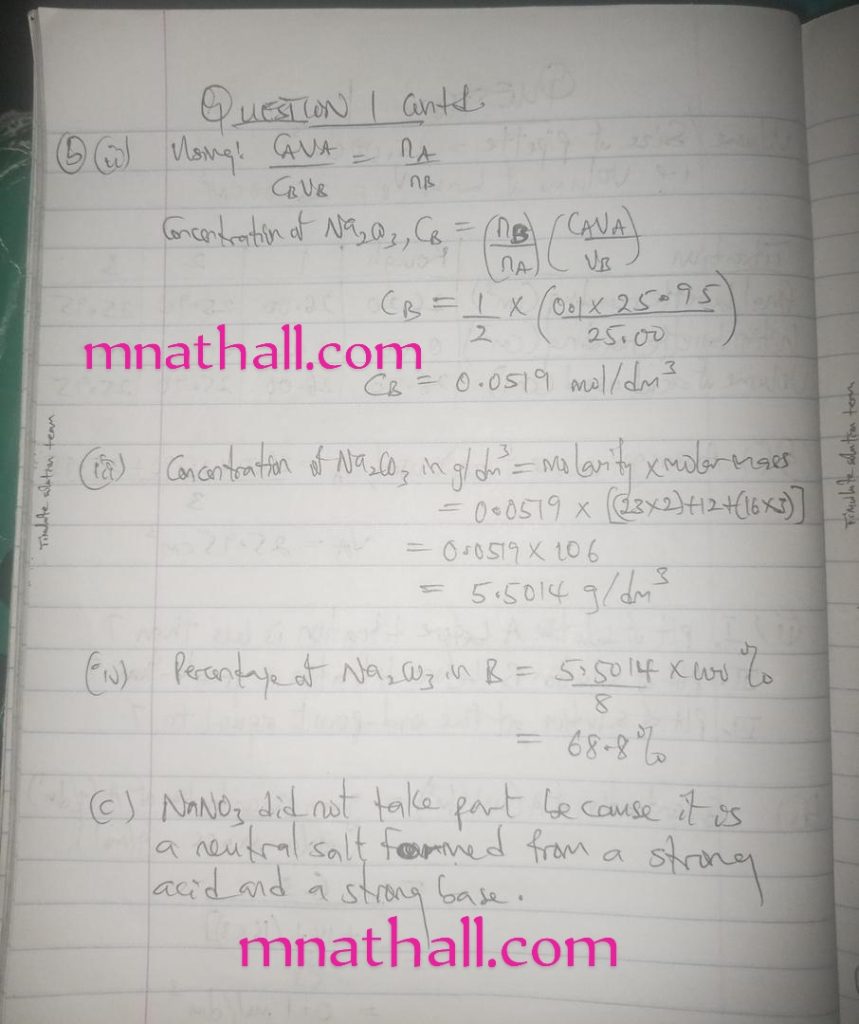 QUESTION 1 contd.
(b)(ii) Using: CAVA/CBVB = nA/nB
Concentration of Na2CO3, CB = (nB/nA) (CAVA/VB)
CB = 1/2 × (0.1 × 25.95/25.00)
mnathall.com
CB = 0.0519 mol/dm³
(iii) Concentration of Na2CO3 in g/dm³ = molarity × molar mass
= 0.0519 × [(23×2)+12+(16×3)]
= 0.0519 × 106
= 5.5014 g/dm³
(iv) Percentage of Na2CO3 in B = 5.5014/8 × 100%
= 68.8%
(c) NaNO3 did not take part because it is
a neutral salt formed from a strong
acid and a strong base.
mnathall.com
Timilate solution team